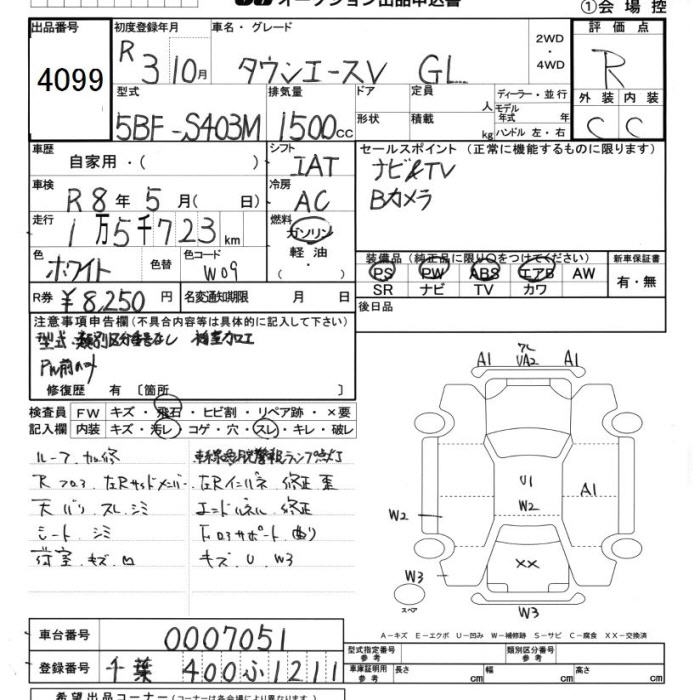 オークション出品申込書
①会場控
出品番号 初度登録年月 車名・グレード 2WD ・4WD 評価点
4099 R3 10月 タウンエースV GL R
型式 排気量 ドア 定員 人 ディーラー・並行 外装 内装
5BF-S403M 1500cc 形状 積載 kg モデル年式 年 ハンドル 左・右 C C
車歴 自家用・( ) シフト IAT セールスポイント (正常に機能するものに限ります)
車検 R8年5月( 日) 冷房 AC ナビ&TV
走行 1万5千723km 燃料 ガソリン 軽油 ・( ) Bカメラ
色 ホワイト 色替 色コード W09 装備品(純正品に限り○をつけてください) 新車保証書
PS PW ABS エアB AW 有・無
SR ナビ TV カワ
R券 ¥8,250円 名変通知期限 月 日 後日品
注意事項申告欄(不具合内容等は具体的に記入して下さい)
型式・類別区分番号なし
修復歴 有 〔箇所 〕
検査員 FW キズ・飛石・ヒビ割・リペア跡・×要
記入欄 内装 キズ・汚レ・コゲ・穴・スレ・キレ・破レ
ルーフ 加修
天バリ スレ シミ エンドパネル 修正
シート シミ
荷室 キズ 凹 キズ U W3
A1 UA2 A1
U1
A1
W2
W2
XX
W3
スペア
W3
A-キズ E-エクボ U-凹み W-補修跡 S-サビ C-腐食 XX-交換済
車台番号 0007051 型式指定番号 参考 類別区分番号 参考
登録番号 千葉 400 ふ 1211 車庫証明用 参考 長さ cm 幅 cm 高さ cm
希望出品コーナー(コーナーは各会場により異なります)